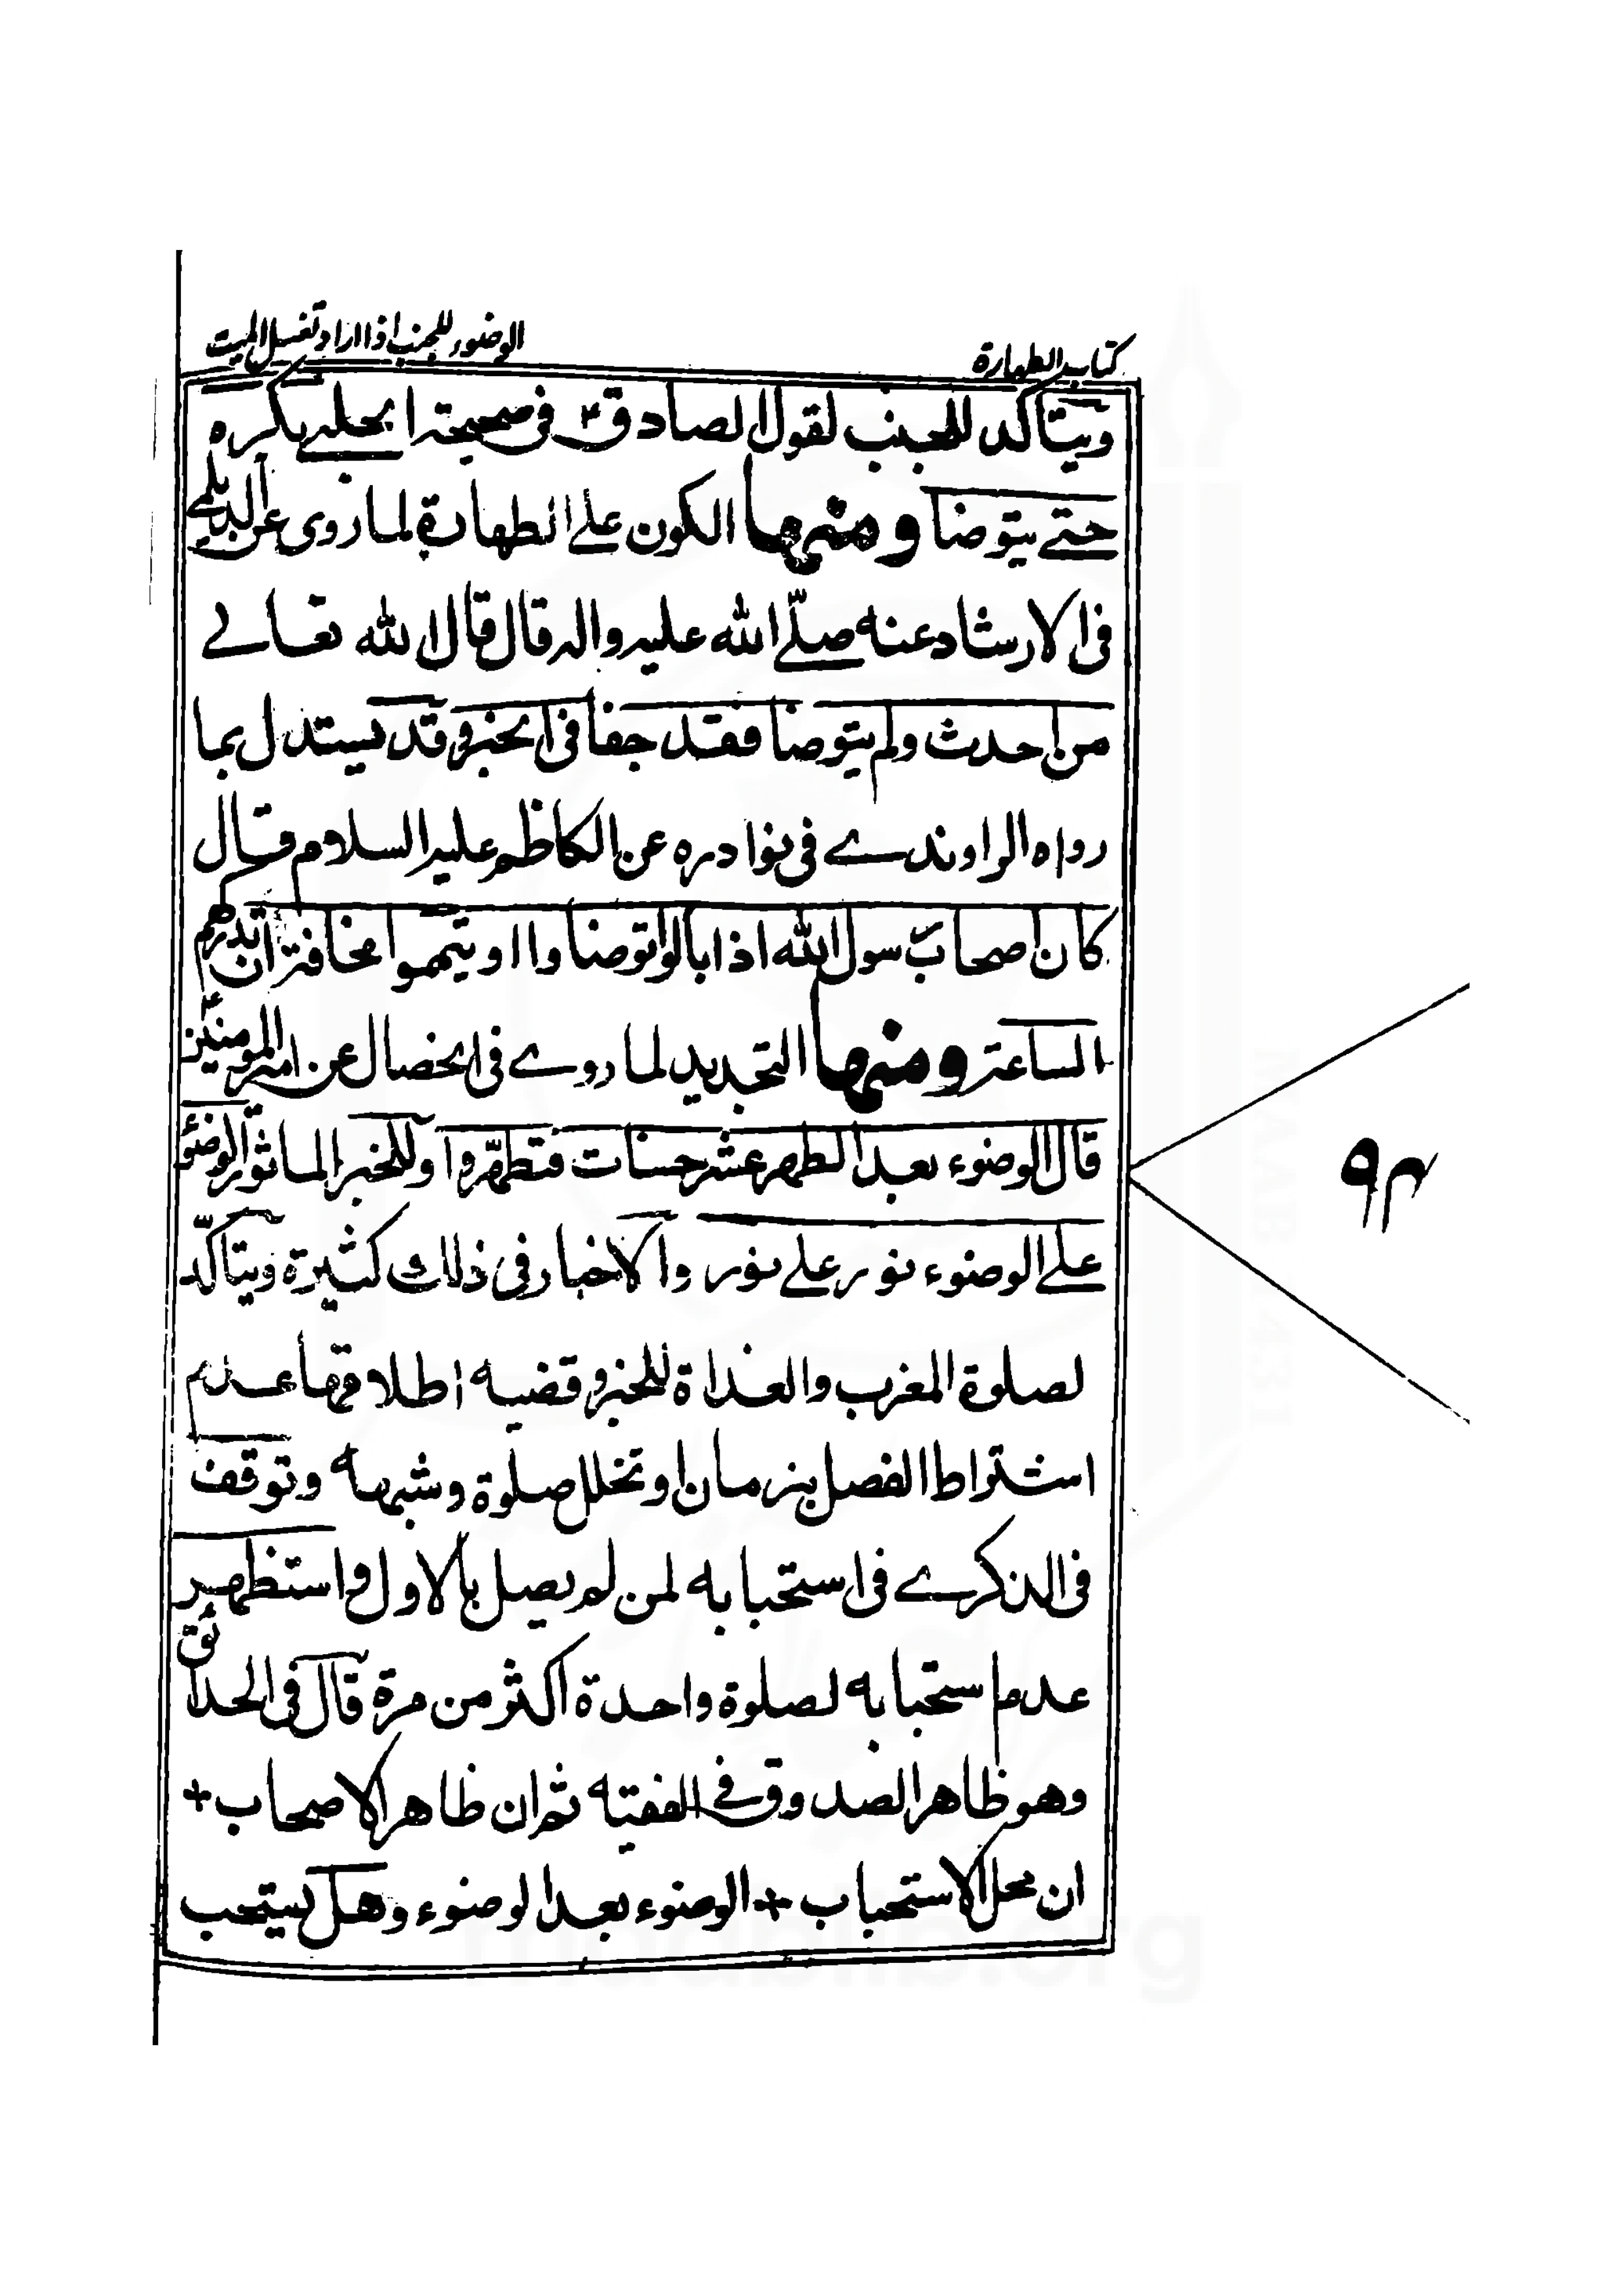 كتاب الطهارة
الوضوء للجنب اذا اراد تغسيل الميت
ويتاكد للجنب لقول الصادق ع في صحيحة الحلبي يكره
حتے يتوضا ومنها الكون علے الطهارة لما روى عن الديلمے
فى الارشاد عنه صلّے الله عليه واله قال قال الله تعالے
من احدث ولم يتوضا فقد جفانى الخبر وقد يستدل بما
رواه الراوندے فى نوادره عن الكاظم عليه السلام قال
كان اصحاب رسول الله اذا بالوا توضاوا او يتيمموا مخافة ان تدركهم
الساعة ومنها التجديد لما روے فى الخصال عن امير المومنين ع
قال الوضوء بعد الطهر عشر حسنات فتطهّروا وللخبر الماثور الوضوء
علے الوضوء نور علے نور والاخبار فى ذلك كثيرة ويتاكّد
لصلوة المغرب والغداة للخبر وقضيه اطلاقها عدم
اشتراط الفصل بزمان او تخلل صلوة وشبهه وتوقف
فى الذكرے فى استحبابه لمن لم يصل بالاول واستظهر
عدم استحبابه لصلوة واحدة اكثر من مرة قال فى الحدائق
وهو ظاهر الصدوق في الفقيه ثم ان ظاهر الاصحاب +
ان محل الاستحباب + الوضوء بعد الوضوء وهل يستحب
٩٣
maablib.org